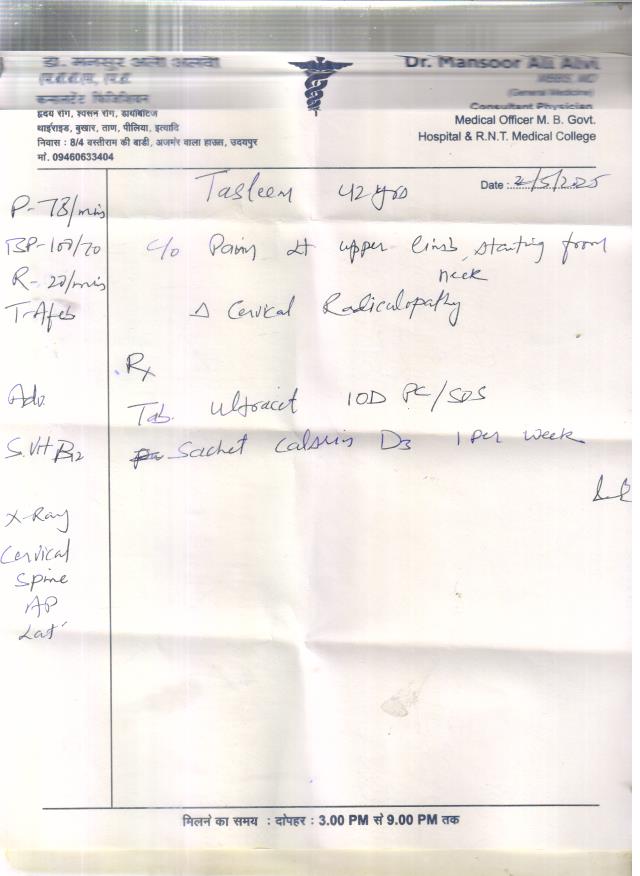 डा. मनसूर अली अलवी
कन्सल्टेंट फिजिशियन
हृदय रोग, श्वसन रोग, डायबिटिज
थाईराइड, बुखार, ताण, पीलिया, इत्यादि
निवास : 8/4 वस्तीराम की बाडी, अजमेर वाला हाऊस, उदयपुर
मो. 09460633404
Dr. Mansoor Ali Alvi
MBBS, MD
(General Medicine)
Consultant Physician
Medical Officer M. B. Govt.
Hospital & R.N.T. Medical College
Date : 2/5/2025
Tasleem 42 yrs
P- 78/min
BP- 100/70
R- 20/min
T- Afeb
c/o Pain Lt upper limb, starting from
neck
Δ Cervical Radiculopathy
Rx
Tab. Ultracet 10D PC/SOS
Sachet Calsium D3 1 per week
Adv.
S. Vit B12
X-Ray
Cervical
Spine
AP
Lat
मिलने का समय : दोपहर : 3.00 PM से 9.00 PM तक